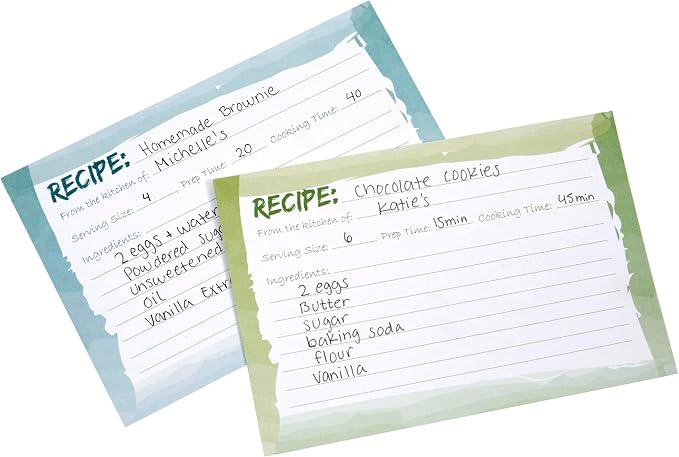 RECIPE: Homemade Brownie
From the kitchen of: Michelle's
Serving Size: 4 Prep Time: 20 Cooking Time: 40
Ingredients:
2 eggs + water
Powdered suga
unsweetened
oil
Vanilla Extra
RECIPE: Chocolate Cookies
From the kitchen of: Katie's
Serving Size: 6 Prep Time: 15min Cooking Time: 45min
Ingredients:
2 eggs
Butter
sugar
baking soda
flour
Vanilla